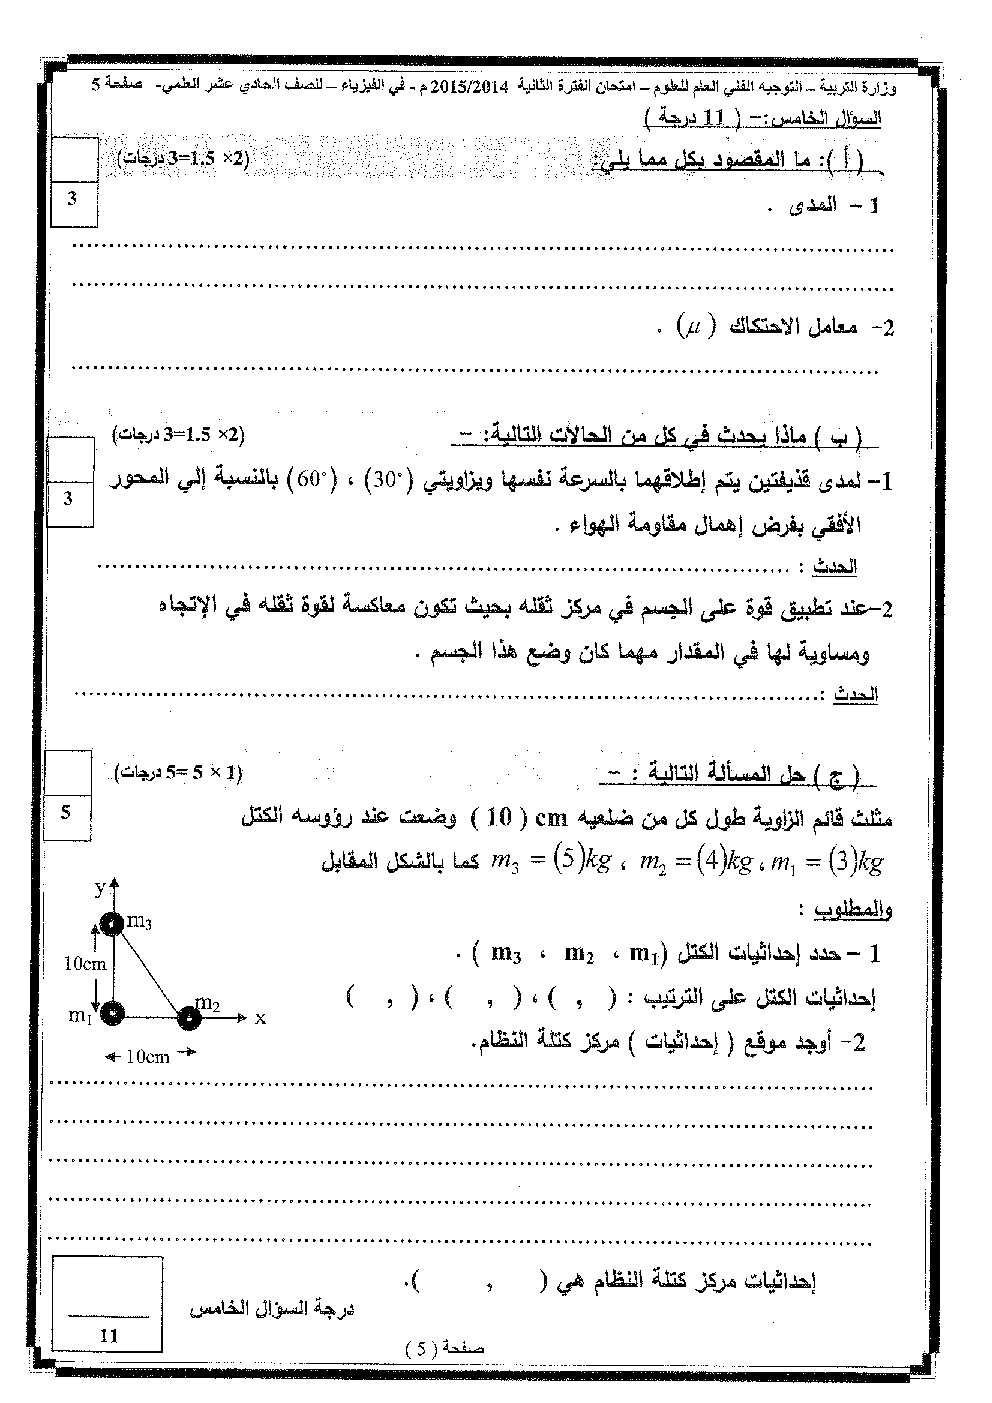 وزارة التربية – التوجيه الفني العام للعلوم – امتحان الفترة الثانية 2015/2014 م - في الفيزياء – للصف الحادي عشر العلمي- صفحة 5
السؤال الخامس:– ( 11 درجة )
( أ ): ما المقصود بكل مما يلي: (2× 1.5=3 درجات)
3
1 – المدى .
2- معامل الاحتكاك ( μ ) .
( ب ) ماذا يحدث في كل من الحالات التالية: – (2× 1.5=3 درجات)
3
1- لمدى قذيفتين يتم إطلاقهما بالسرعة نفسها وبزاويتي (30°) ، (60°) بالنسبة إلي المحور
الأفقي بفرض إهمال مقاومة الهواء .
الحدث : ........
2-عند تطبيق قوة على الجسم في مركز ثقله بحيث تكون معاكسة لقوة ثقله في الإتجاه
ومساوية لها في المقدار مهما كان وضع هذا الجسم .
الحدث :........
( ج ) حل المسألة التالية : – (1 × 5 =5 درجات)
5
مثلث قائم الزاوية طول كل من ضلعيه cm ( 10 ) وضعت عند رؤوسه الكتل
m₁ = (3)kg ، m₂ = (4)kg ، m₃ = (5)kg كما بالشكل المقابل
والمطلوب :
1 – حدد إحداثيات الكتل (m₁ ، m₂ ، m₃ ) .
إحداثيات الكتل على الترتيب : ( , ) ، ( , ) ، ( , )
2- أوجد موقع ( إحداثيات ) مركز كتلة النظام.
y
m₃
10cm
m₁
m₂
x
10cm
إحداثيات مركز كتلة النظام هي ( , ).
درجة السؤال الخامس
11
صفحة ( 5 )